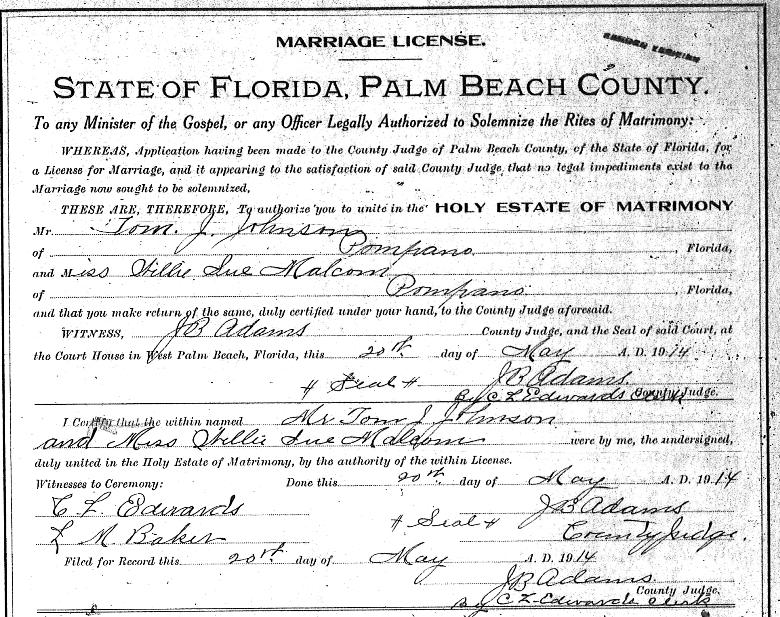 MARRIAGE LICENSE.
STATE OF FLORIDA, PALM BEACH COUNTY.
To any Minister of the Gospel, or any Officer Legally Authorized to Solemnize the Rites of Matrimony:
WHEREAS, Application having been made to the County Judge of Palm Beach County, of the State of Florida, for
a License for Marriage, and it appearing to the satisfaction of said County Judge that no legal impediments exist to the
Marriage now sought to be solemnized,
THESE ARE, THEREFORE, To authorize you to unite in the HOLY ESTATE OF MATRIMONY
Mr. Tom. J. Johnson
of Pompano. Florida,
and Miss Willie Sue Malcom
of Pompano. Florida,
and that you make return of the same, duly certified under your hand, to the County Judge aforesaid.
WITNESS, J B Adams County Judge, and the Seal of said Court, at
the Court House in West Palm Beach, Florida, this 20th day of May A. D. 1914
# Seal # J B Adams.
By C L Edwards Clerk County Judge.
I Certify that the within named Mr Tom J Johnson
and Miss Willie Sue Malcom were by me, the undersigned,
duly united in the Holy Estate of Matrimony, by the authority of the within License.
Witnesses to Ceremony: Done this 20th day of May A. D. 1914
C L Edwards J B Adams
L M Baker # Seal # County Judge.
Filed for Record this 20th day of May A. D. 1914
J B Adams.
County Judge.
By C L Edwards Clerk